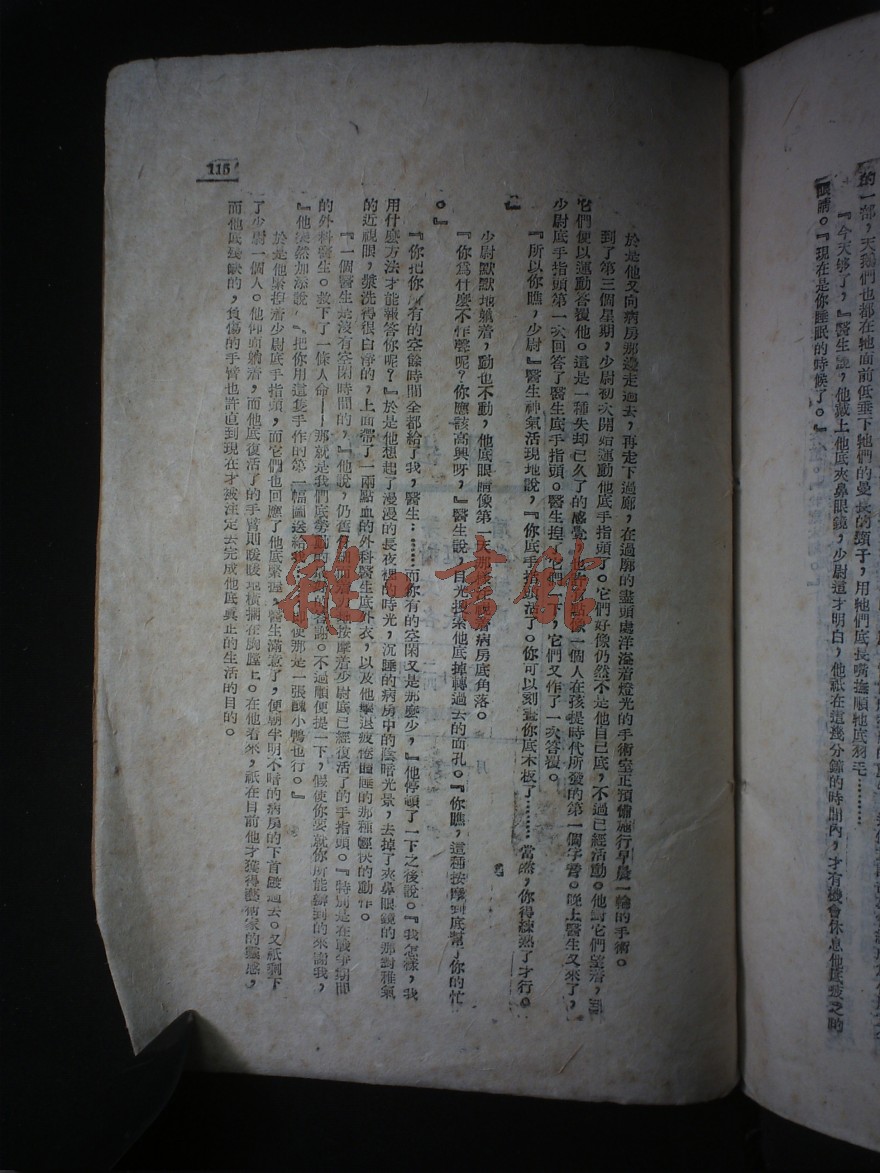 的一部，天鵝們也都在牠面前低垂下牠們的曼長的頸子，用牠們底長嘴撫順牠底羽毛………
『今天够了，』醫生說，他戴上他底夾鼻眼鏡，少尉這才明白，他祇在這幾分鐘的時間內，才有機會休息他底疲乏的
眼睛。『現在是你睡眠的時候了。』
於是他又向病房那邊走過去，再走下過廊，在過廊的盡頭處洋溢着燈光的手術室正預備施行早晨一輪的手術。
到了第三個星期，少尉初次開始運動他底手指頭了。它們好像仍然不是他自己底，不過已經活動。他對它們望着，而
它們便以運動答覆他。這是一種失却已久了的感覺，也許有點像一個人在孩提時代所發的第一個字音。晚上醫生又來了，
少尉底手指頭第一次回答了醫生底手指頭。醫生捏了它們一下，它們又作了一次答覆。
『所以你瞧，少尉』醫生神氣活現地說，『你底手指頭活了。你可以刻畫你底木板了………當然，你得練熟了才行。
』
少尉默默地躺着，動也不動，他底眼睛像第一天那樣注視着病房底角落。
『你爲什麼不作聲呢？你應該高興呀，』醫生說，目光搜索他底掉轉過去的面孔。『你瞧，這種按摩到底幫了你的忙
。』
『你把你所有的空餘時間全都給了我，醫生：……而你有的空閑又是那麼少，』他停頓了一下之後說。『我怎樣，我
用什麼方法才能報答你呢？』於是他想起了漫漫的長夜裡的時光，沉睡的病房中的陰暗光景，去掉了夾鼻眼鏡的那對稚氣
的近視眼，漿洗得很白淨的，上面帶了一兩點血的外科醫生底外衣，以及他擊退疲倦瞌睡的那種輕快的動作。
『一個醫生是沒有空閑時間的，』他說，仍舊有調有節地按摩着少尉底已經復活了的手指頭。『特別是在戰爭期間
的外科醫生。救下了一條人命——那就是我們底勞動的最大的答謝。不過順便提一下，假使你要就你所能辦到的來謝我，
』他突然加添說，『把你用這隻手作的第一幅圖送給我……即使那是一張醜小鴨也行。』
於是他緊握着少尉底手指頭，而它們也回應了他底緊握，醫生滿意了，便朝半明不暗的病房的下首踱過去。又祇剩下
了少尉一個人。他仰面躺着，而他底復活了的手臂則暖暖地橫擱在胸膛上。在他看來，祇在目前他才獲得藝術家的靈感，
而他底殘缺的，負傷的手臂也許直到現在才被注定去完成他底真正的生活的目的。
115